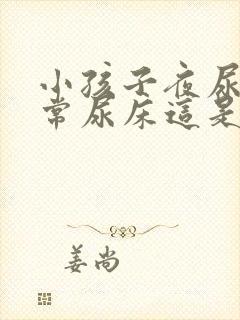 小孩子夜尿
常尿床這是
姜尚